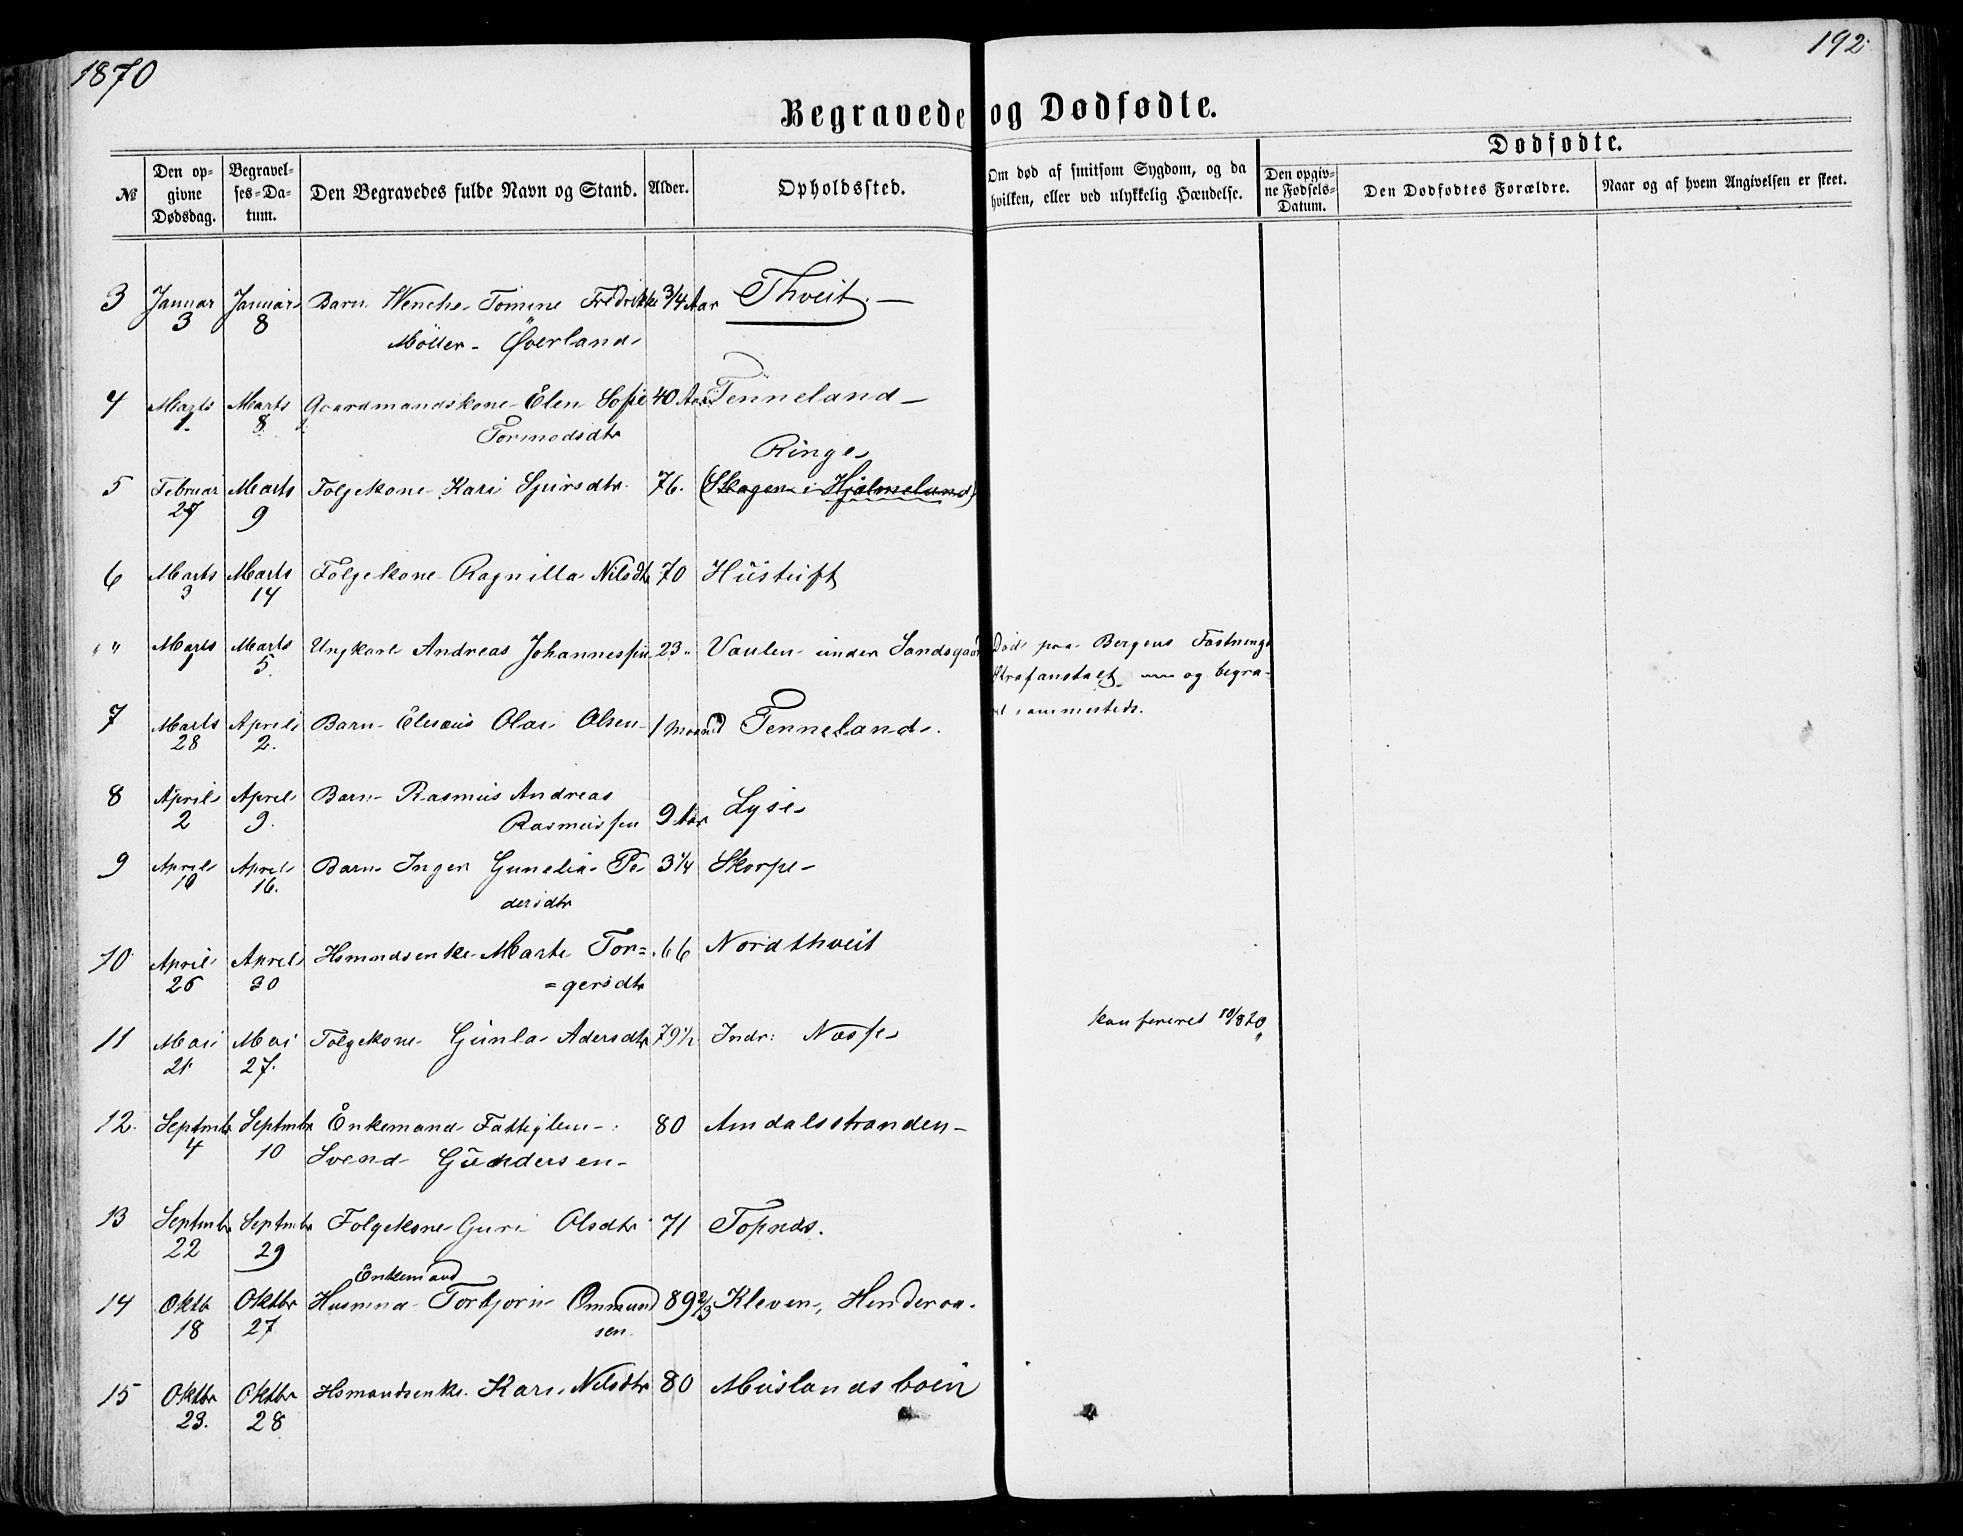 1870
192
Begravede og Dødfødte.
№ | Den opgivne Dødsdag. | Begravelses-Datum. | Den Begravedes fulde Navn og Stand. | Alder. | Opholdssted. | Om død af smitsom Sygdom, og da hvilken, eller ved ulykkelig Hændelse. | Dødfødte. | Den opgivne Fødsels-Datum. | Den Dødfødtes Forældre. | Naar og af hvem Angivelsen er skeet.
3 Januar Januar Barn Wenche Tomine Fredrikke 3/4 Aar Thveit
3 8 Möller Øverland
4 Marts Marts Gaardmandskone Elen Sofie 40 Aar Tenneland
1 8 Tormodsdtr
Ringe
5 Februar Marts Folgekone Kari Sjursdtr 76. (Skagen i Hjelmeland)
27 9
6 Marts Marts Folgekone Ragnilla Nilsdtr 70 Hustuft
3 14
" " Marts Marts Ungkarl Andreas Johannessen 23 Vaulen under Sandsgaard Död paa Bergens Fæstnings
1 5 Strafanstalt og begra-
7 Marts April Barn Eliseus Olai Olsen 1 Maaned Tenneland. sammesteds.
28 2.
8 April April Barn Rasmus Andreas
2 9. Rasmussen 9 Aar Lyse
9 April April Barn Inger Gunelia Pe- 3 1/4 Skorpe
10 16. dersdtr
10 April April Hsmndsenke Marte Tor= 66 Nordthveit
25 30 =gersdtr
konfereret 10/8 70
11 Mai Mai Folgekone Gunla Adersdtr 79 1/2 Indr: Næsse
21 27.
12. Septmbr Septmbr Enkemand Fattiglem 80 Amdalsstranden
4 10 Svend Gundersen
13 Septmbr Septmbr Folgekone Guri Olsdtr 71 Topnæs.
22 29
Enkemand
14 Oktb Oktbr Husmnd Torbjorn Ommund 89 2/3 Kleven, Henderaa.
18 27 sen.
15 Oktbr Oktbr Hsmandsenke Kari Nilsdtr 80 Muslandsboin
23. 28